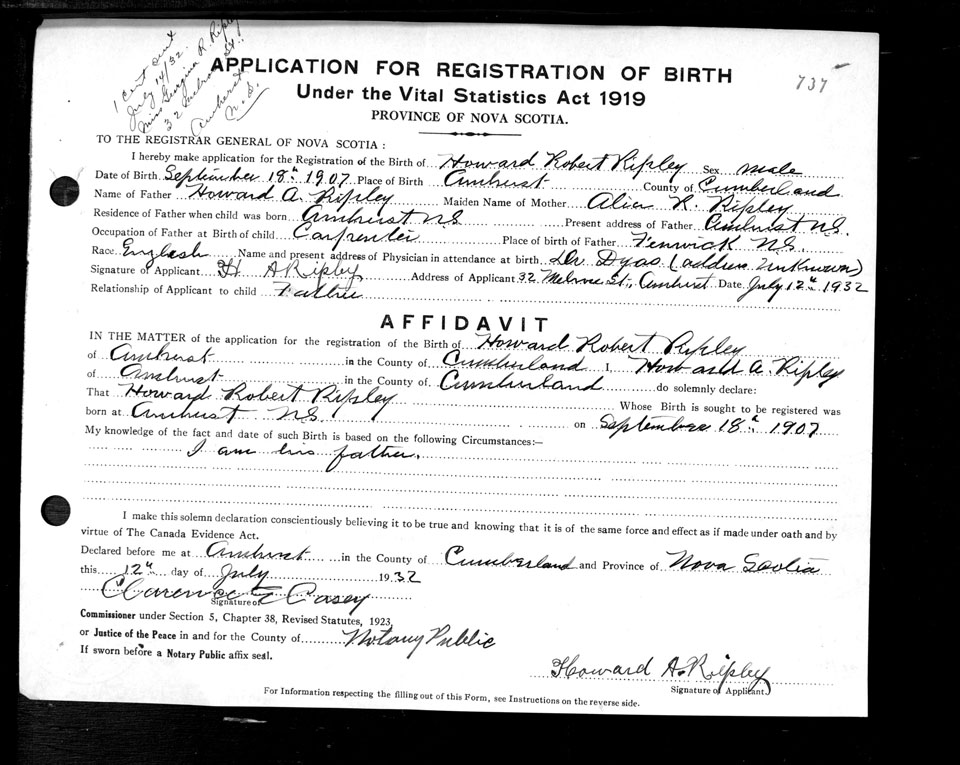 1 cent sent
July 14/32.
Miss Georgina R. Ripley
32 St.
Amherst
N.S.
737
APPLICATION FOR REGISTRATION OF BIRTH
Under the Vital Statistics Act 1919
PROVINCE OF NOVA SCOTIA.
TO THE REGISTRAR GENERAL OF NOVA SCOTIA :
I hereby make application for the Registration of the Birth of Howard Robert Ripley Sex Male
Date of Birth September 18th 1907 Place of Birth Amherst County of Cumberland
Name of Father Howard A. Ripley Maiden Name of Mother R. Ripley
Residence of Father when child was born Amherst N.S Present address of Father Amherst N.S.
Occupation of Father at Birth of child Carpenter Place of birth of Father Fenwick N.S.
Race English Name and present address of Physician in attendance at birth Dr Dyas (address Unknown)
Signature of Applicant H A Ripley Address of Applicant 32 St., Amherst Date July 12th 1932
Relationship of Applicant to child Father
AFFIDAVIT
IN THE MATTER of the application for the registration of the Birth of Howard Robert Ripley
of Amherst in the County of Cumberland I, Howard A. Ripley
of Amherst in the County of Cumberland do solemnly declare:
That Howard Robert Ripley Whose Birth is sought to be registered was
born at Amherst N.S. on September 18th, 1907
My knowledge of the fact and date of such Birth is based on the following Circumstances:—
I am his father.
I make this solemn declaration conscientiously believing it to be true and knowing that it is of the same force and effect as if made under oath and by
virtue of The Canada Evidence Act.
Declared before me at Amherst in the County of Cumberland and Province of Nova Scotia
this 12th day of July 1932
Clarence Casey
Signature of
Commissioner under Section 5, Chapter 38, Revised Statutes, 1923,
or Justice of the Peace in and for the County of Notary Public
If sworn before a Notary Public affix seal.
Howard A. Ripley
Signature of Applicant.
For Information respecting the filling out of this Form, see Instructions on the reverse side.